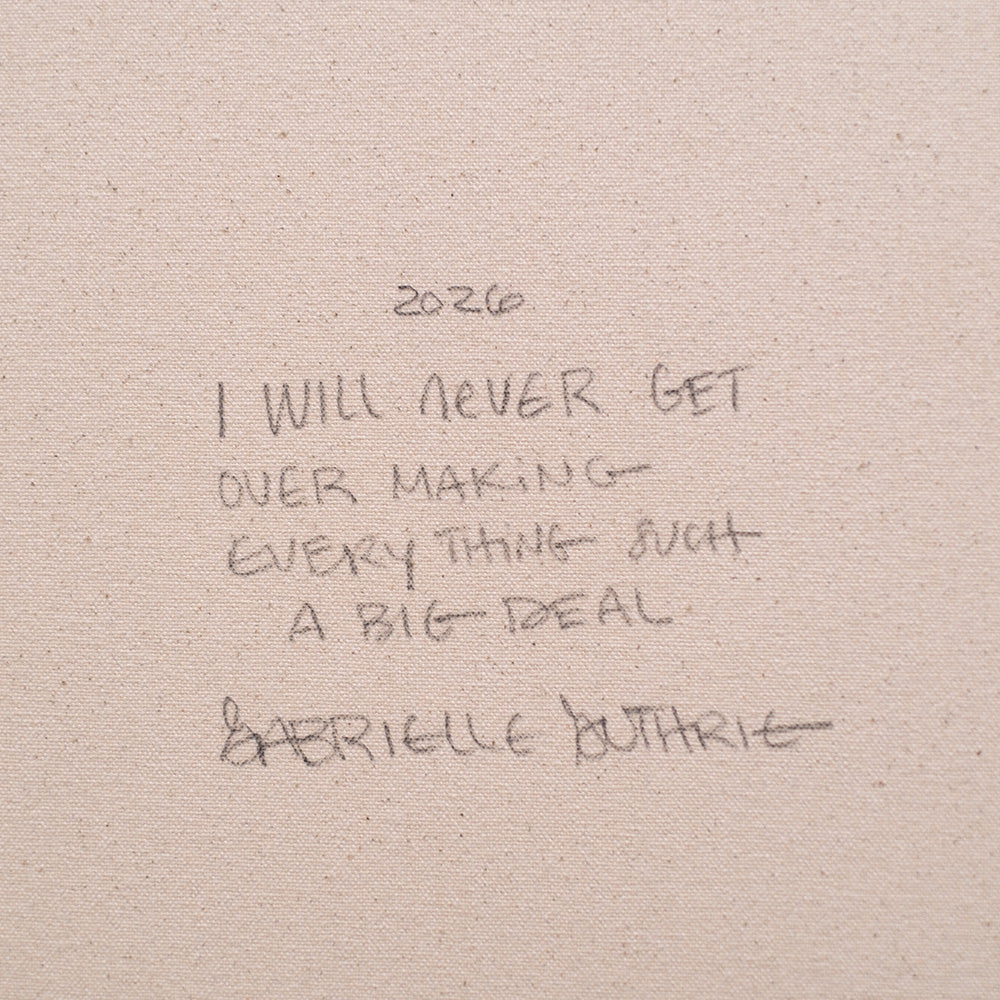 2026
I WILL NEVER GET
OVER MAKING
EVERYTHING SUCH
A BIG DEAL
GABRIELLE GUTHRIE